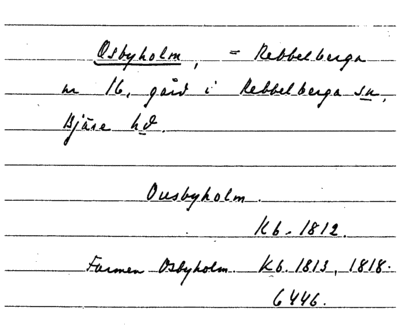 Osbyholm, = Rebbelberga
nr 16, gård i Rebbelberga sn,
Bjäre hd.
Ousbyholm.
Kb. 1812.
Formen Osbyholm Kb. 1813, 1818.
6446.